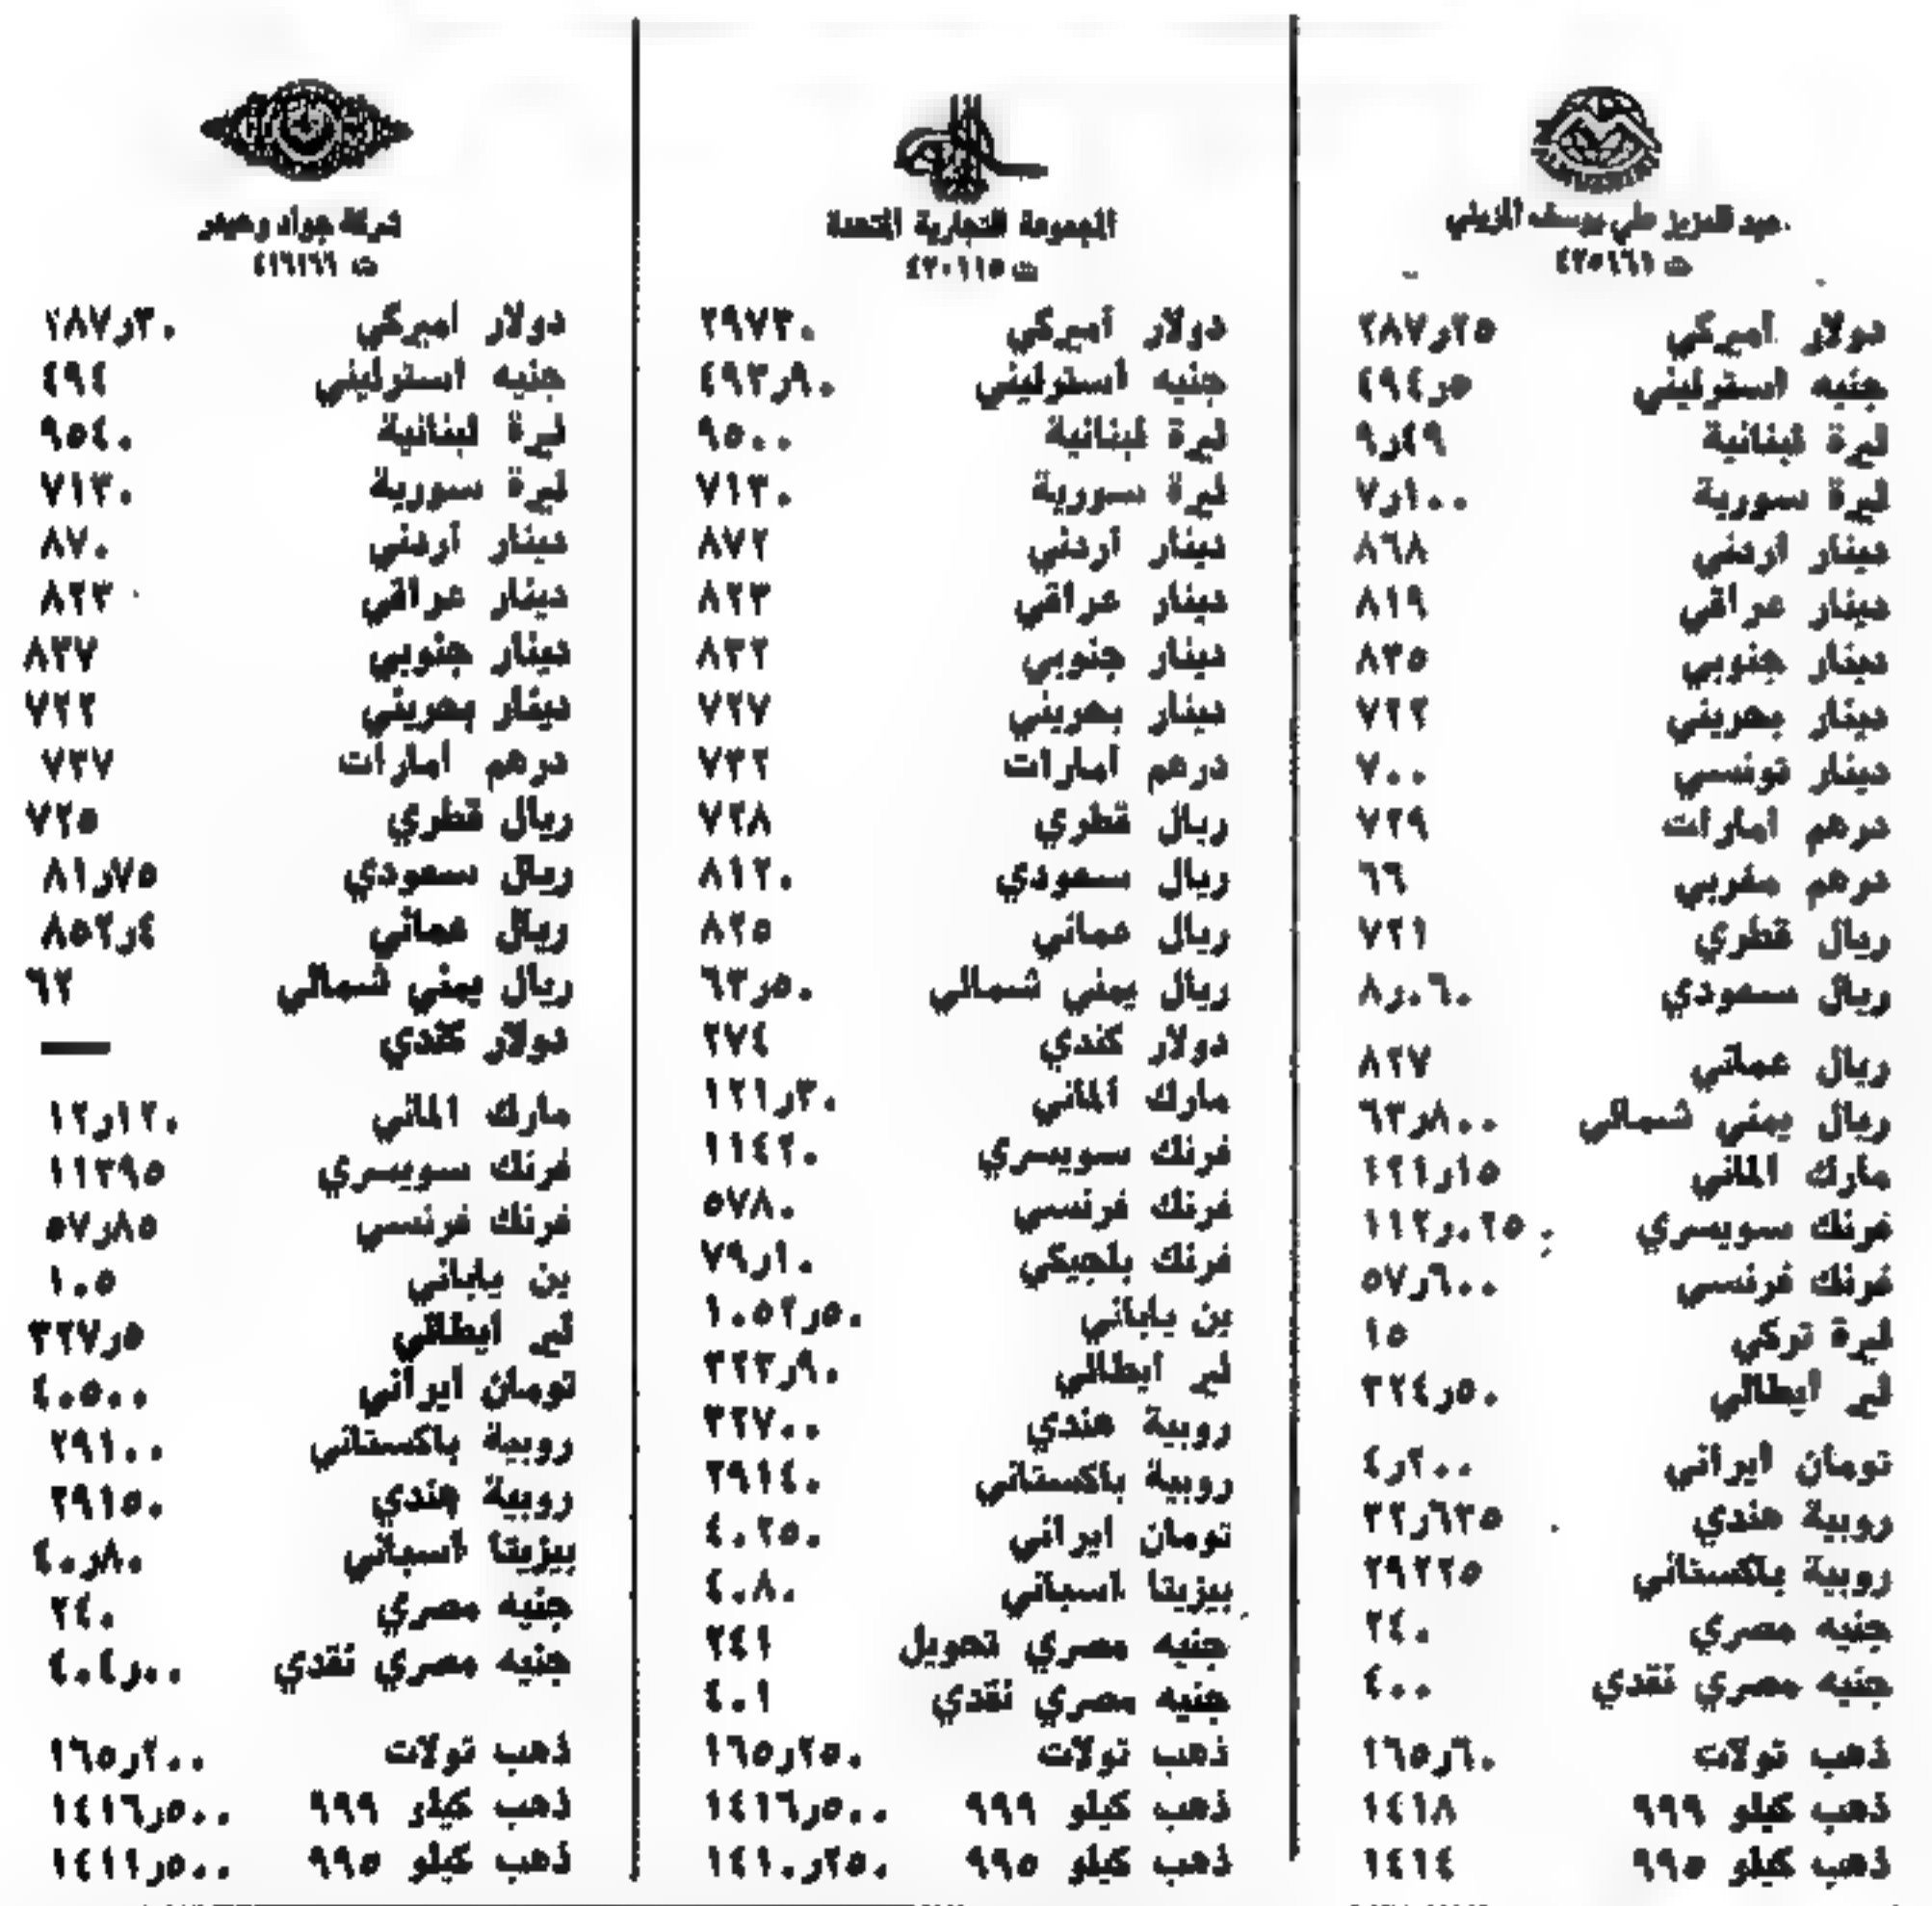 عبد العزيز علي يوسف المزيني
ت ٤٢٥١٦١
دولار أميركي ٢٨٧٫٢٥
جنيه استرليني ٤٩٤٫٥
ليرة لبنانية ٩٫٤٩
ليرة سورية ٧٫١٠٠
دينار اردني ٨٦٨
دينار عراقي ٨١٩
دينار جنوبي ٨٣٥
دينار بحريني ٧٢٢
دينار تونسي ٧٠٠
درهم امارات ٧٣٩
درهم مغربي ٦٦
ريال قطري ٧٢١
ريال سعودي ٨٫٠٦٠
ريال عماني ٨٢٧
ريال يمني شمالي ٦٣٫٨٠٠
مارك الماني ١٢١٫١٥
فرنك سويسري ١١٢٫٠٢٥
فرنك فرنسي ٥٧٫٦٠٠
ليرة تركي ١٥
لير ايطالي ٢٢٤٫٥٠
تومان ايراني ٤٫٢٠٠
روبية هندي ٣٢٫٦٣٥
روبية باكستاني ٢٩٢٢٥
جنيه مصري ٢٤٠
جنيه مصري نقدي ٤٠٠
ذهب تولات ١٦٥٫٦٠
ذهب كيلو ٩٩٩ ١٤١٨
ذهب كيلو ٩٩٥ ١٤١٤
المجموعة التجارية المتحدة
ت ٤٢٠١١٥
دولار أميركي ٢٩٧٣٠
جنيه استرليني ٤٩٣٫٩٠
ليرة لبنانية ٩٥٠٠
ليرة سورية ٧١٣٠
دينار أردني ٨٧٢
دينار عراقي ٨٢٣
دينار جنوبي ٨٣٢
دينار بحريني ٧٢٧
درهم امارات ٧٣٢
ريال قطري ٧٢٨
ريال سعودي ٨١٢٠
ريال عماني ٨٢٥
ريال يمني شمالي ٦٣٫٥٠
دولار كندي ٢٧٤
مارك الماني ١٢١٫٣٠
فرنك سويسري ١١٤٢٠
فرنك فرنسي ٥٧٨٠
فرنك بلجيكي ٧٩٫١٠
ين ياباني ١٠٥٢٫٥٠
لير ايطالي ٢٢٣٫٩٠
روبية هندي ٣٢٧٠٠
روبية باكستاني ٢٩١٤٠
تومان ايراني ٤٠٢٥٠
بيزيتا اسباني ٤٠٨٠
جنيه مصري تحويل ٢٤١
جنيه مصري نقدي ٤٠١
ذهب تولات ١٦٥٫٢٥٠
ذهب كيلو ٩٩٩ ١٤١٦٫٥٠٠
ذهب كيلو ٩٩٥ ١٤١٠٫٢٥٠
شركة جواد وحيدر
ت ٤١٦١٦٦
دولار اميركي ٢٨٧٫٣٠
جنيه استرليني ٤٩٤
ليرة لبنانية ٩٥٤٠
ليرة سورية ٧١٣٠
دينار أردني ٨٧٠
دينار عراقي ٨٢٣
دينار جنوبي ٨٣٧
دينار بحريني ٧٢٢
درهم امارات ٧٣٧
ريال قطري ٧٢٥
ريال سعودي ٨١٫٧٥
ريال عماني ٨٥٢٫٤
ريال يمني شمالي ٦٢
دولار كندي —
مارك الماني ١٢٫١٢٠
فرنك سويسري ١١٣٩٥
فرنك فرنسي ٥٧٫٨٥
ين ياباني ١٠٥
لير ايطالي ٢٢٧٫٥
تومان ايراني ٤٠٥٠٠
روبية باكستاني ٢٩١٠٠
روبية هندي ٢٩١٥٠
بيزيتا اسباني ٤٠٫٨٠
جنيه مصري ٢٤٠
جنيه مصري نقدي ٤٠٤٫٠٠
ذهب تولات ١٦٥٫٢٠٠
ذهب كيلو ٩٩٩ ١٤١٦٫٥٠٠
ذهب كيلو ٩٩٥ ١٤١١٫٥٠٠